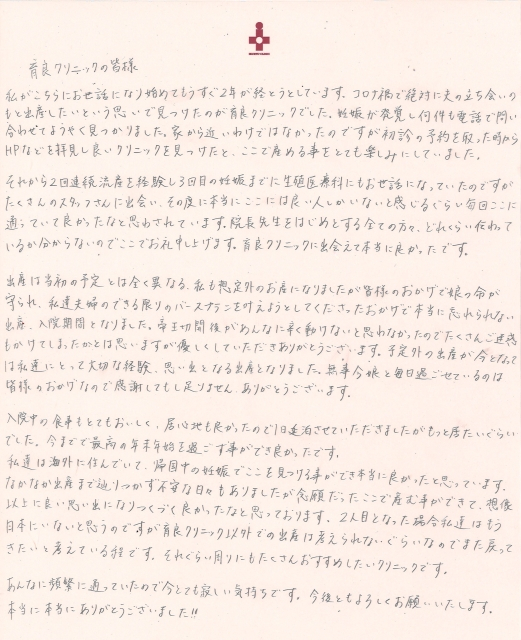 育良クリニックの皆様
私がこちらにお世話になり始めてもうすぐ2年が経とうとしています。コロナ禍で絶対に夫の立ち会いの
もと出産したいという思いで見つけたのが育良クリニックでした。妊娠が発覚し何件も電話で問い
合わせてようやく見つかりました。家から近いわけではなかったのですが初診の予約を取った時から
HPなどを拝見し良いクリニックを見つけたと、ここで産める事をとても楽しみにしていました。
それから2回連続流産を経験し3回目の妊娠までに生殖医療科にもお世話になっていたのですが
たくさんのスタッフさんに出会い、その度に本当にここには良い人しかいないと感じるぐらい毎回ここに
通っていて良かったなと思わされています。院長先生をはじめとする全ての方々、どれくらい伝わって
いるか分からないのでここでお礼申し上げます。育良クリニックに出会えて本当に良かったです。
出産は当初の予定とは全く異なる、私も想定外のお産になりましたが皆様のおかげで娘の命が
守られ、私達夫婦のできる限りのバースプランを叶えようとしてくださったおかげで本当に忘れられない
出産、入院期間となりました。帝王切開後があんなに早く動けないと思わなかったのでたくさんご迷惑
もかけてしまったかとは思いますが優しくしていただきありがとうございます。予定外の出産が今となって
は私達にとって大切な経験、思い出となる出産となりました。無事今娘と毎日過ごせているのは
皆様のおかげなので感謝してもし足りません。ありがとうございます。
入院中の食事もとてもおいしく、居心地も良かったので1日延泊させていただきましたがもっと居たいぐらい
でした。今までで最高の年末年始を過ごす事ができ良かったです。
私達は海外に住んでいて、帰国中の妊娠でここを見つける事ができ本当に良かったと思っています。
なかなか出産まで辿りつかず不安な日々もありましたが念願だったここで産む事ができて、想像
以上に良い思い出になりつくづく良かったなと思っております。2人目となった場合私達はもう
日本にいないと思うのですが育良クリニック以外での出産は考えられないぐらいなのでまた戻って
きたいと考えている程です。それぐらい周りにもたくさんおすすめしたいクリニックです。
あんなに頻繁に通っていたので今とても寂しい気持ちです。今後ともよろしくお願いいたします。
本当に本当にありがとうございました!!